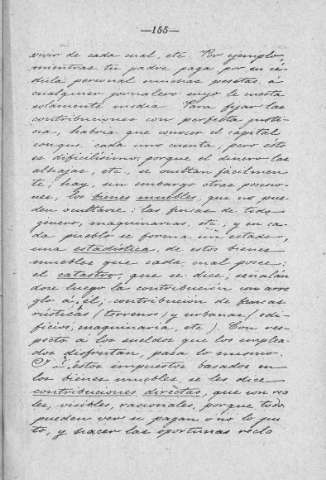 —155—
vivir de cada cual, etc. Por ejemplo
mientras tu padre paga por su cé-
dula personal muchas pesetas, á
cualquier jornalero suyo le cuesta
solamente media. Para fijar las
contribuciones con perfecta justi-
cia, habría que conocer el capital
con que cada uno cuenta, pero esto
es dificilísimo; porque el dinero las
alhajas, etc., se ocultan fácilmen
te; hay, sin embargo otras posesio-
nes, los bienes muebles, que no pue
den ocultarse: las fincas de todo
género, maquinarias, etc., y en ca-
da pueblo se forma un estado,
una estadística, de estos bienes
muebles que cada cual posee:
el catastro, que se dice, señalán
dose luego la contribución con arre
glo á él; contribución de fincas
rústicas (terrenos) y urbanas (edi-
ficios, maquinaria, etc.) Con res-
pecto á los sueldos que los emplea-
dos disfrutan, pasa lo mismo.
estos impuestos basados en
los bienes muebles se les dice
contribuciones directas, que son rea
les, visibles, racionales, porque todos
pueden ver si pagan ó no lo jus
to, y hacer las oportunas recla